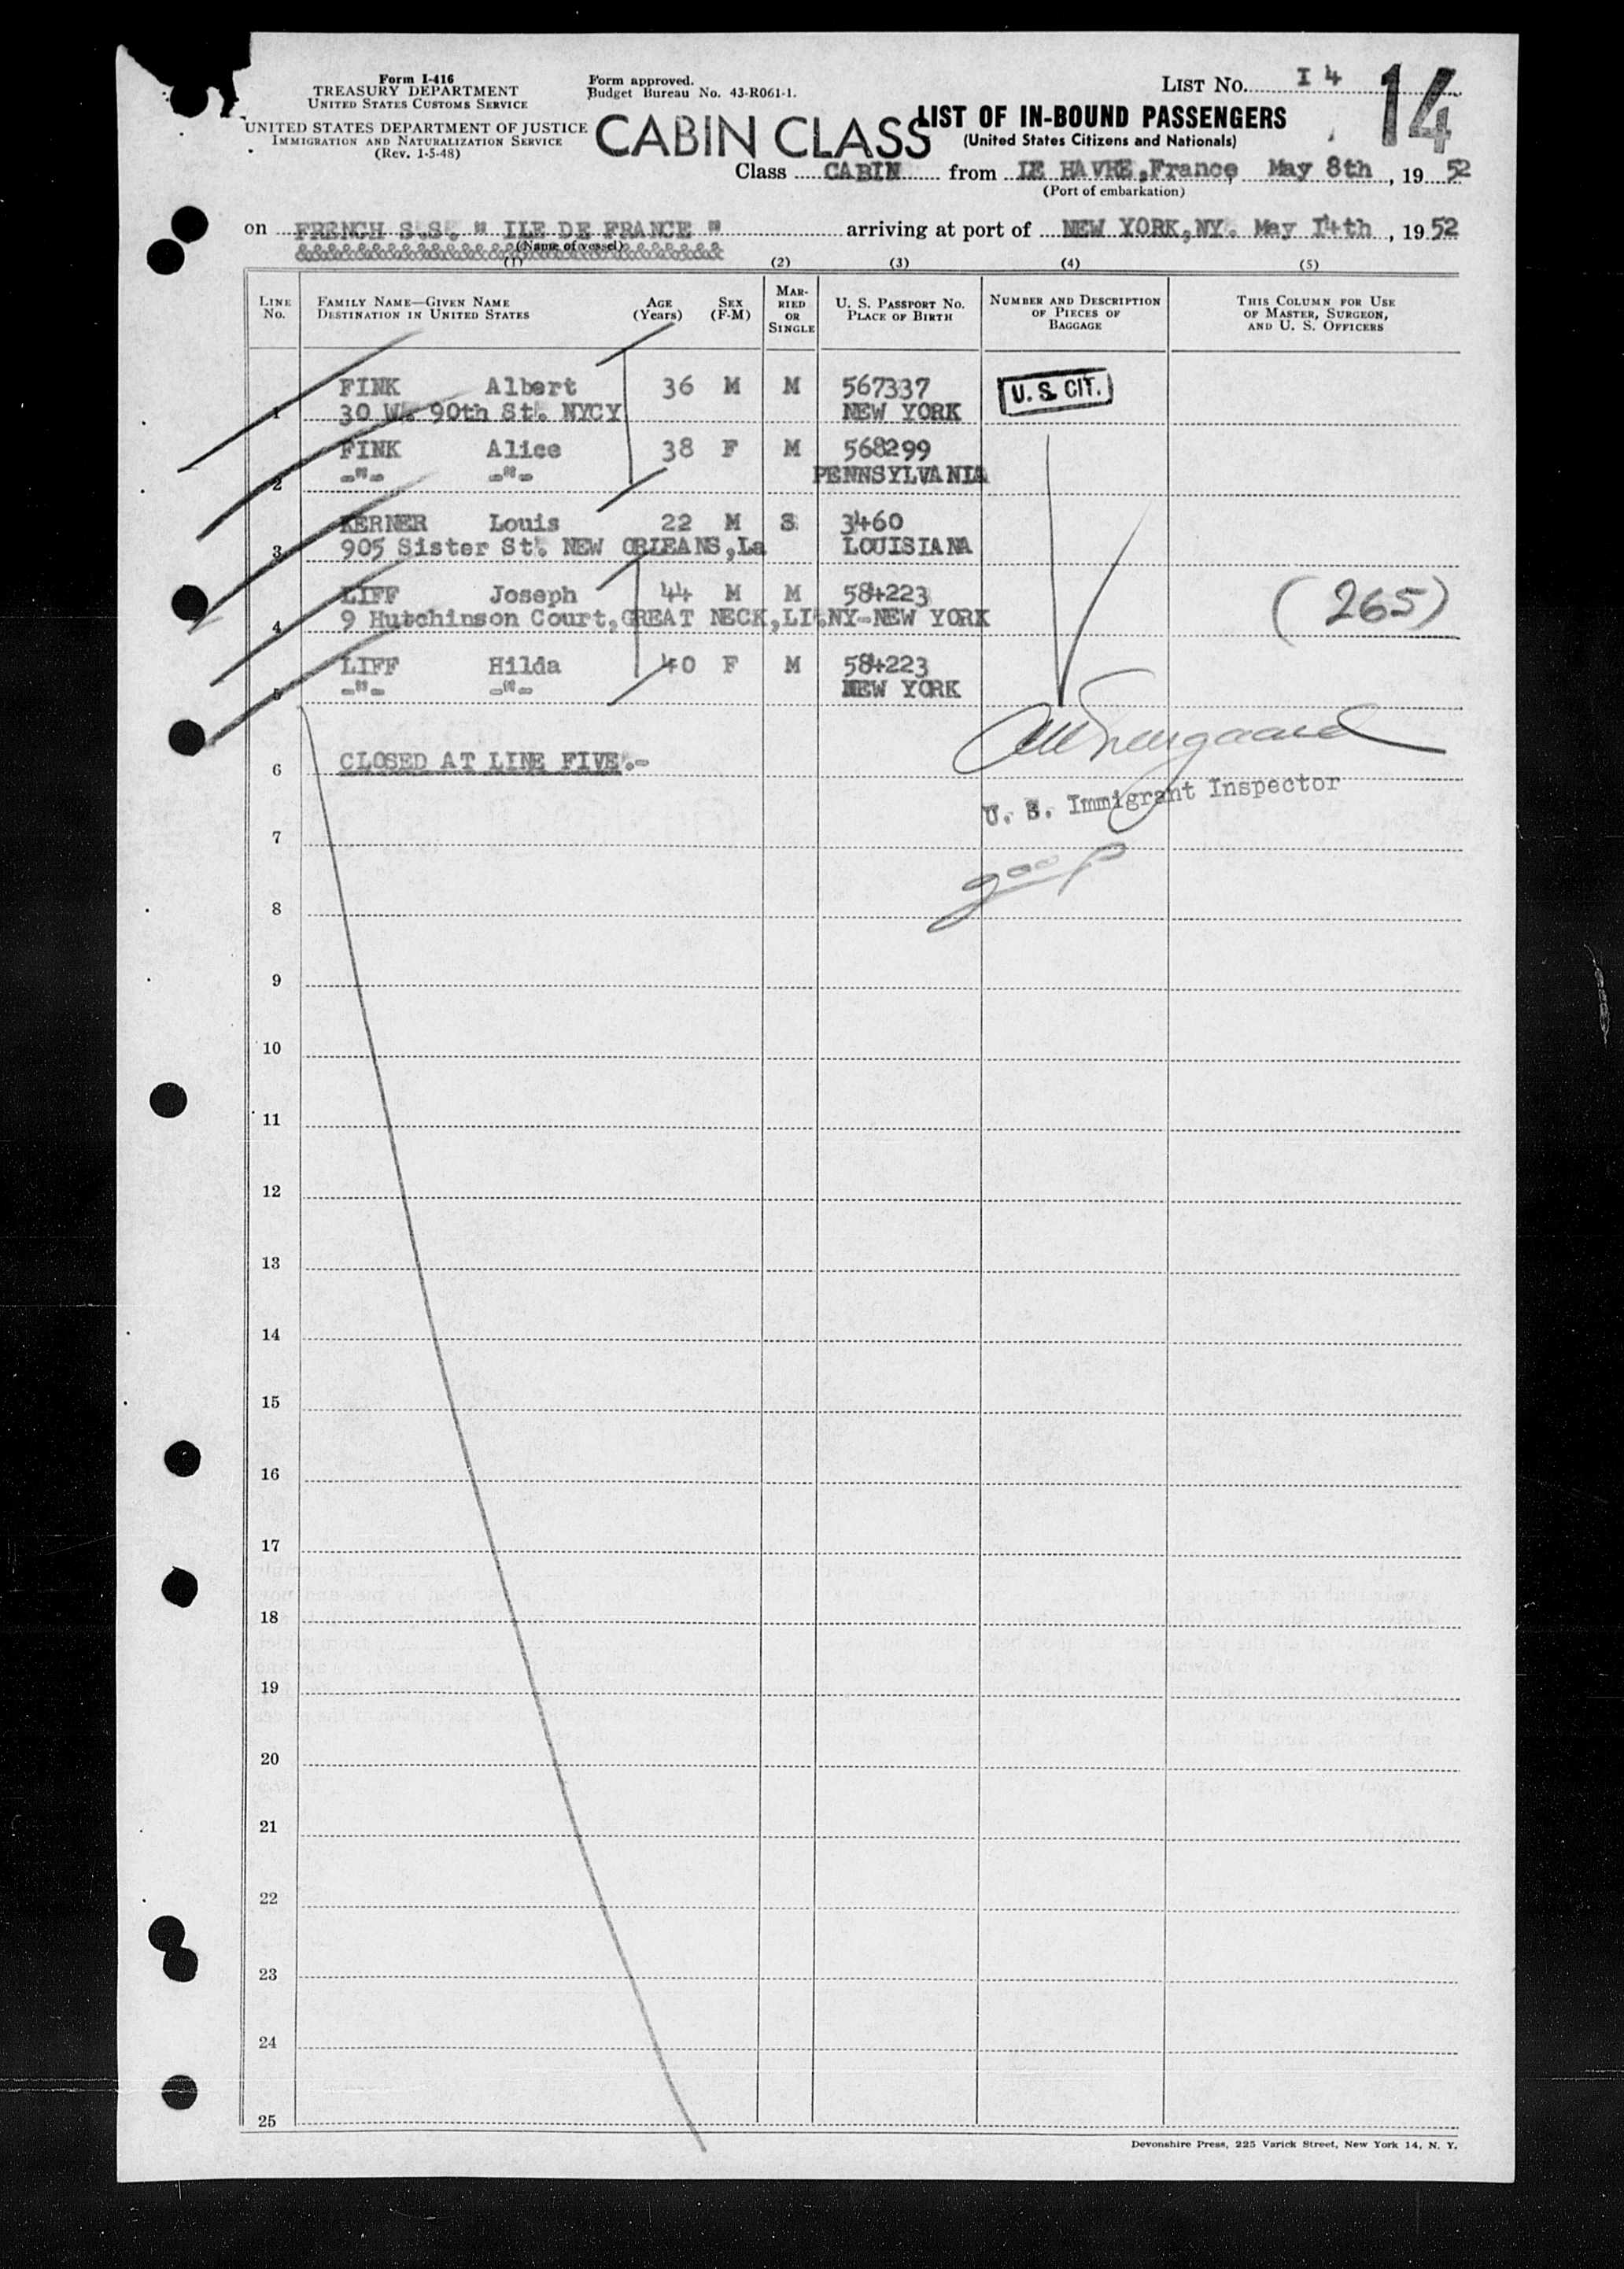 Form I-416
TREASURY DEPARTMENT
UNITED STATES CUSTOMS SERVICE
UNITED STATES DEPARTMENT OF JUSTICE
IMMIGRATION AND NATURALIZATION SERVICE
(Rev. 1-5-48)
Form approved.
Budget Bureau No. 43-R061-1.
LIST NO. I4
14
CABIN CLASS
LIST OF IN-BOUND PASSENGERS
(United States Citizens and Nationals)
Class CABIN from LE HAVRE, France, May 8th, 1952
(Port of embarkation)
on FRENCH S.S. " ILE DE FRANCE " arriving at port of NEW YORK, NY. May I4th, 1952
(Name of vessel)
(1) (2) (3) (4) (5)
LINE NO.
FAMILY NAME—GIVEN NAME
DESTINATION IN UNITED STATES
AGE (Years)
SEX (F-M)
MARRIED OR SINGLE
U. S. PASSPORT NO.
PLACE OF BIRTH
NUMBER AND DESCRIPTION OF PIECES OF BAGGAGE
THIS COLUMN FOR USE OF MASTER, SURGEON, AND U. S. OFFICERS
FINK Albert 36 M M 567337 U. S. CIT.
1 30 W. 90th St. NYCY NEW YORK
FINK Alice 38 F M 568299
2 -"- -"- PENNSYLVANIA
KERNER Louis 22 M S 3460
3 905 Sister St. NEW ORLEANS, La LOUISIANA
LIFF Joseph 44 M M 584223 (265)
4 9 Hutchinson Court, GREAT NECK, LI.NY-NEW YORK
LIFF Hilda 40 F M 584223
5 -"- -"- NEW YORK
6 CLOSED AT LINE FIVE.-
U. S. Immigrant Inspector
7
8
9
10
11
12
13
14
15
16
17
18
19
20
21
22
23
24
25
Devonshire Press, 225 Varick Street, New York 14, N. Y.